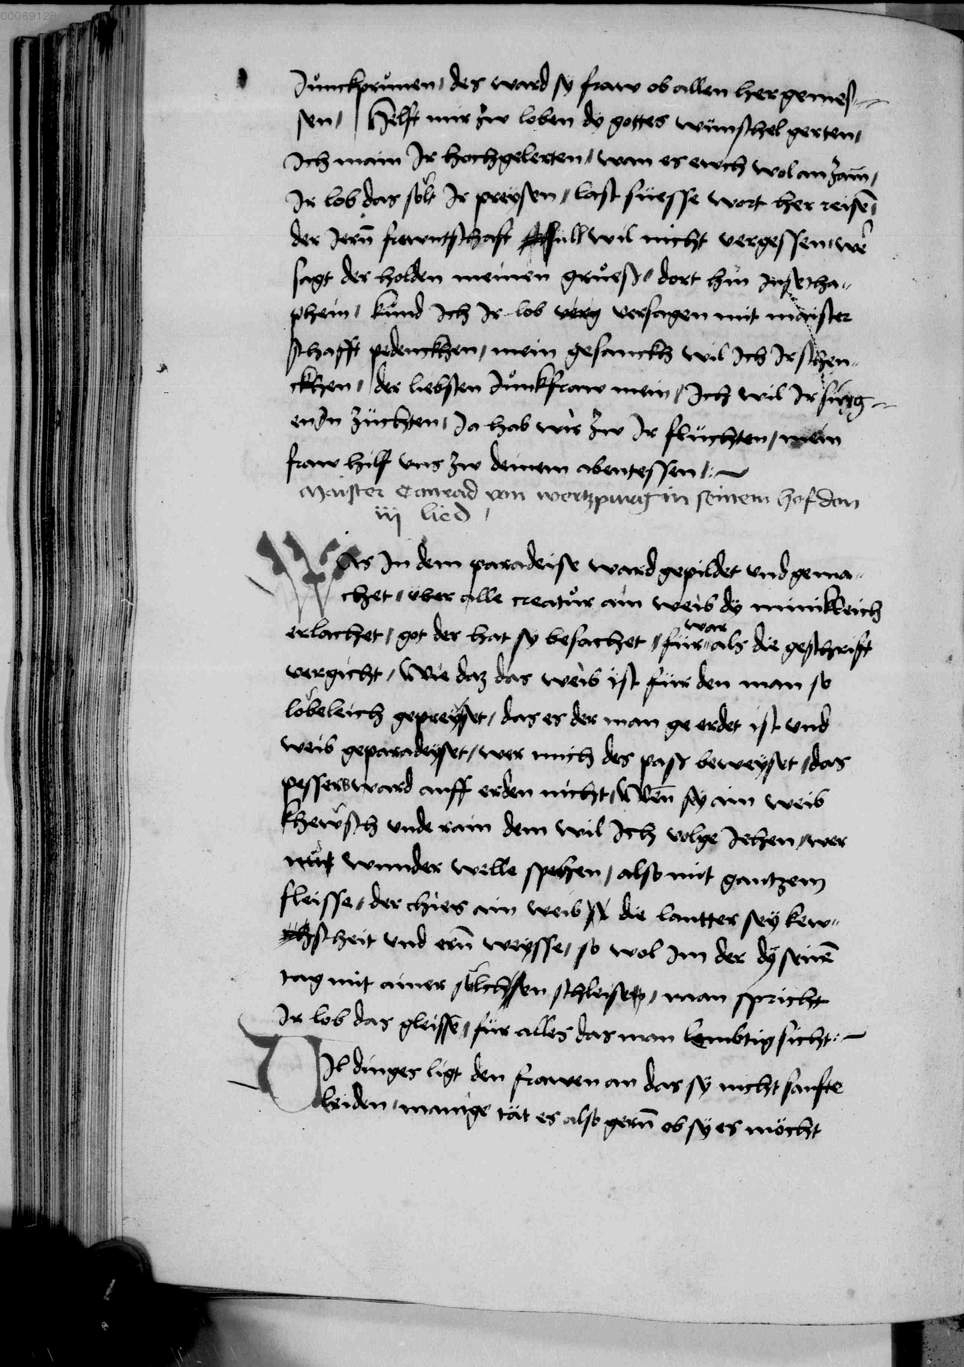 00069128
Junckprunen / des ward sy fraw ob allen her gemes-
sen / Helft mir zw loben dy gottes wunschel gerten /
Ich main Ir hochgelerten / wan es ewch wol an zam /
Ir lob das solt Ir preysen / last suesse wort her reisen /
der Iern frewntschaft will wil nicht vergessen / wer
sagt der holden meinen gruess / dort hin In
phein / kund Ich Ir lob versagen mit maister
schafft pedenckhen / mein gesanckh wil Ich Ir schen-
ckhen / der liebsten Junkfraw mein / Ich wil Ir sing-
en In zuchten / Ia hab wir zw Ir fluchten / mein
fraw hilf vns zw deinem abentessen /:~
Maister Conrad von wertzpurg in seinem hof don
iij lied /
Was In dem paradeise ward gepildet vnd gema-
chet / vber alle creatur ain weib dy minikleich
erlachet / got der hat sy besachet / fur war als die geschrift
vergicht / Wie daz das weib ist fur den man so
lobeleich gepreyset / das es der man ge erdet ist vnd
weib geparadeyset / wer mich des pass beweyset / das
pessers ward auff erden nicht / Wen sy ain weib
khewsch vnde rain dem wil Ich volge Iehen / wer
nu wunder welle spehen / also mit gantzem
fleisse / der chies ain weib die lautter sey kew-
scheit vnd ern weysse / so wol Im der dy seinen
tag mit ainer solchen schleisen / man spricht
Ir lob das gleissen / fur alles das man lembtig sicht :~
Vil dinges ligt den frawen an das sy nicht sanfte
leiden / manige tat es also gern ob sy es möcht